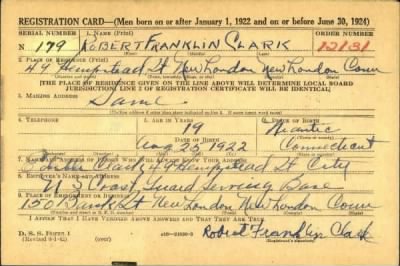 REGISTRATION CARD—(Men born on or after January 1, 1922 and on or before June 30, 1924)
SERIAL NUMBER 1. NAME (Print) ORDER NUMBER
N 179 ROBERT FRANKLIN CLARK 12131
2. PLACE OF RESIDENCE (Print)
49 Hempstead St New London New London Conn
[THE PLACE OF RESIDENCE GIVEN ON THE LINE ABOVE WILL DETERMINE LOCAL BOARD
JURISDICTION; LINE 2 OF REGISTRATION CERTIFICATE WILL BE IDENTICAL]
3. MAILING ADDRESS
Same
4. TELEPHONE 5. AGE IN YEARS 6. PLACE OF BIRTH
19 Niantic
DATE OF BIRTH
Aug 25 1922 Connecticut
7. NAME AND ADDRESS OF PERSON WHO WILL ALWAYS KNOW YOUR ADDRESS
Clark 49 Hempstead St City
8. EMPLOYER'S NAME AND ADDRESS
U S Coast Guard Serving Base
9. PLACE OF EMPLOYMENT OR BUSINESS
150 Bank St New London New London Conn
I AFFIRM THAT I HAVE VERIFIED ABOVE ANSWERS AND THAT THEY ARE TRUE.
D. S. S. FORM 1
Robert Franklin Clark
(Registrant's signature)